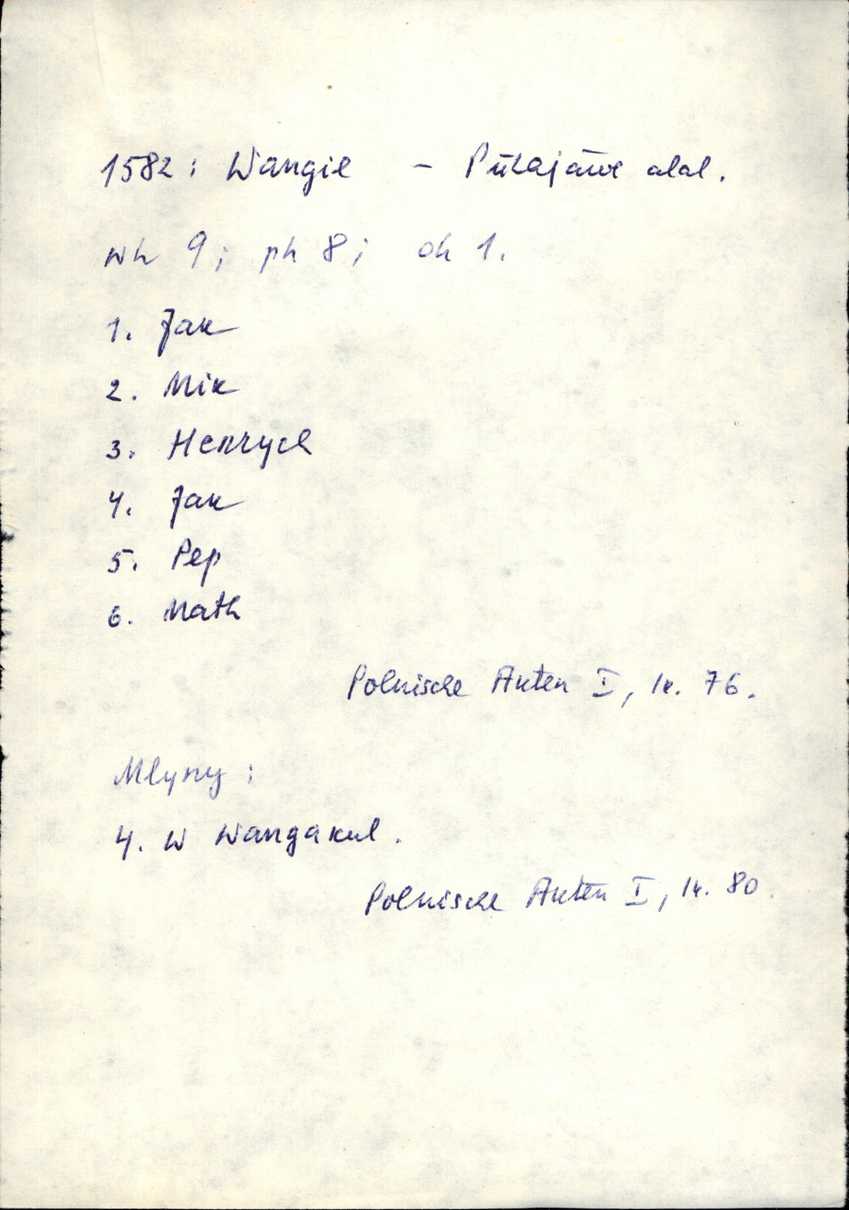 1582: Wangil – Pühajärve alal.
wh 9; ph 8; oh 1.
1. Jak
2. Mik
3. Henrych
4. Jak
5. Pep
6. Math
Polnische Akten I, lk. 76.
Mlyny:
4. W Wangakul.
Polnische Akten I, lk. 80.